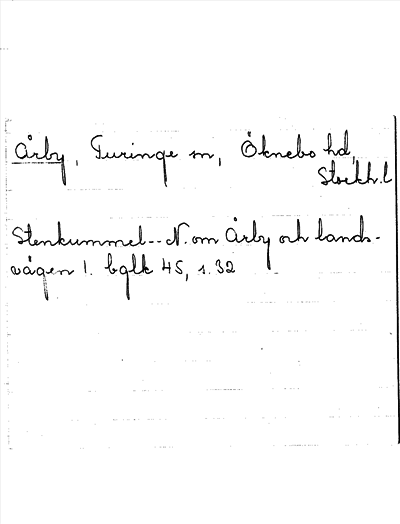 Årby, Turinge sn, Öknebo hd,
Stockh.l
Stenkummel--N. om Årby och lands-
vägen 1. bglk 45, s. 32